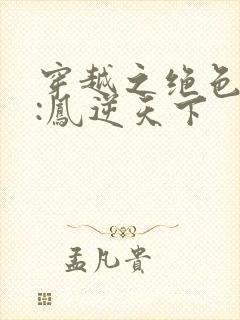 穿越之绝色
:鳳逆天下
孟凡貴